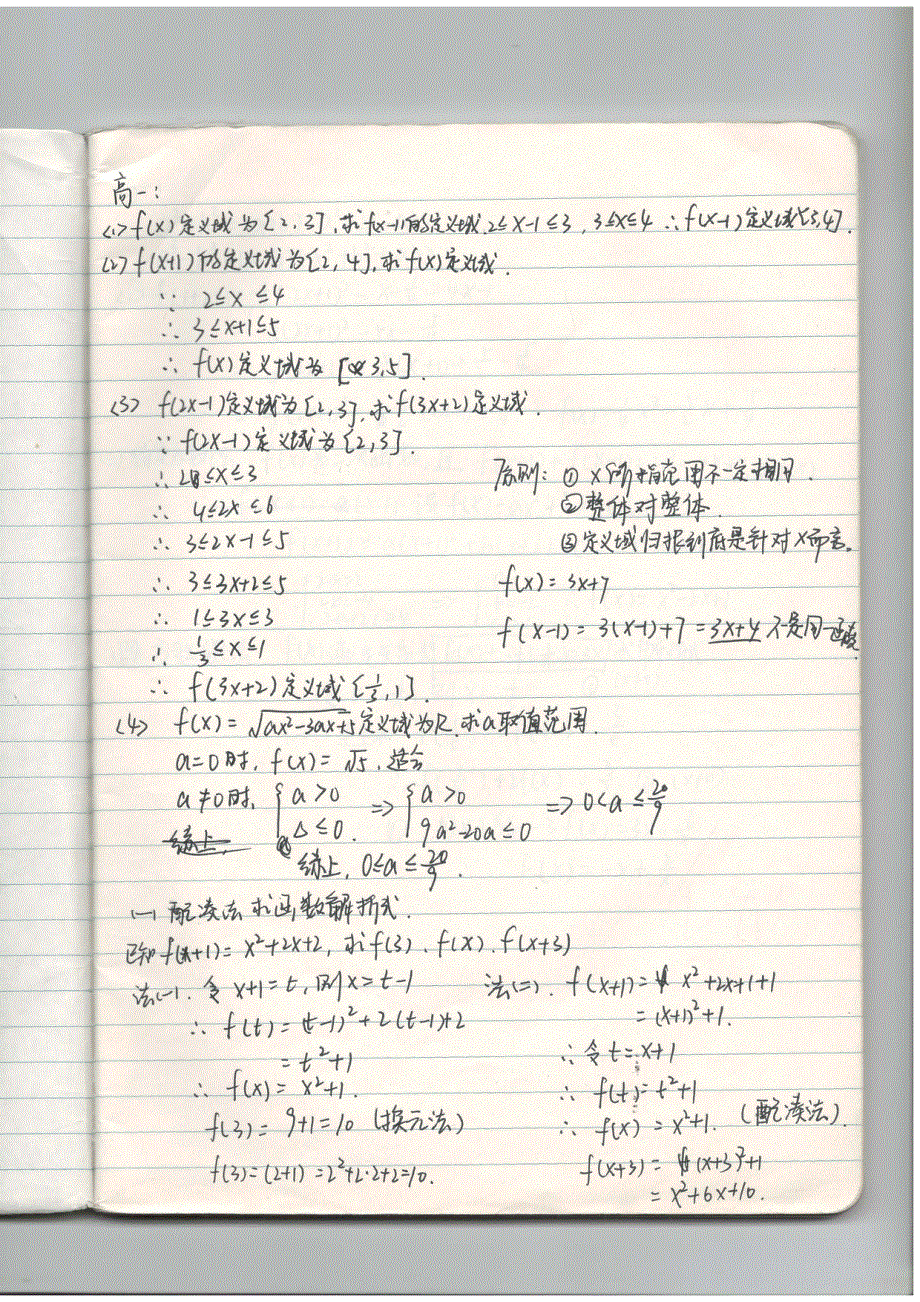 高一:
(1) f(x)定义域为[2,3],求f(x-1)的定义域.2≤x-1≤3,3≤x≤4 ∴f(x-1)定义域[3,4].
(2) f(x+1)的定义域为[2,4],求f(x)定义域.
∵ 2≤x≤4
∴ 3≤x+1≤5
∴ f(x)定义域为[3,5].
(3) f(2x-1)定义域为[2,3],求f(3x+2)定义域.
∵ f(2x-1)定义域为[2,3].
∴ 2≤x≤3
∴ 4≤2x≤6
∴ 3≤2x-1≤5
∴ 3≤3x+2≤5
∴ 1≤3x≤3
∴ 1/3≤x≤1
∴ f(3x+2)定义域[1/3,1].
原则: ① x所指范围不一定相同.
②整体对整体.
③定义域归根到底是针对x而言。
f(x)=3x+7
f(x-1)=3(x-1)+7=3x+4 不是同一函数
(4) f(x)=√(ax²-3ax+5)定义域为R.求a取值范围.
a=0时,f(x)=√5,适合
a≠0时, {a>0 Δ≤0. => {a>0 9a²-20a≤0 => 0<a≤20/9
综上,0≤a≤20/9.
(一)配凑法求函数解析式.
已知f(x+1)=x²+2x+2,求f(3).f(x).f(x+3)
法(一).令x+1=t,则x=t-1
∴ f(t)=(t-1)²+2(t-1)+2
=t²+1
∴ f(x)=x²+1.
f(3)=9+1=10 (换元法)
f(3)=(2+1)=2²+2·2+2=10.
法(二). f(x+1)=x²+2x+1+1
=(x+1)²+1.
∴令t=x+1
∴ f(t)=t²+1
∴ f(x)=x²+1. (配凑法).
f(x+3)=(x+3)²+1
=x²+6x+10.